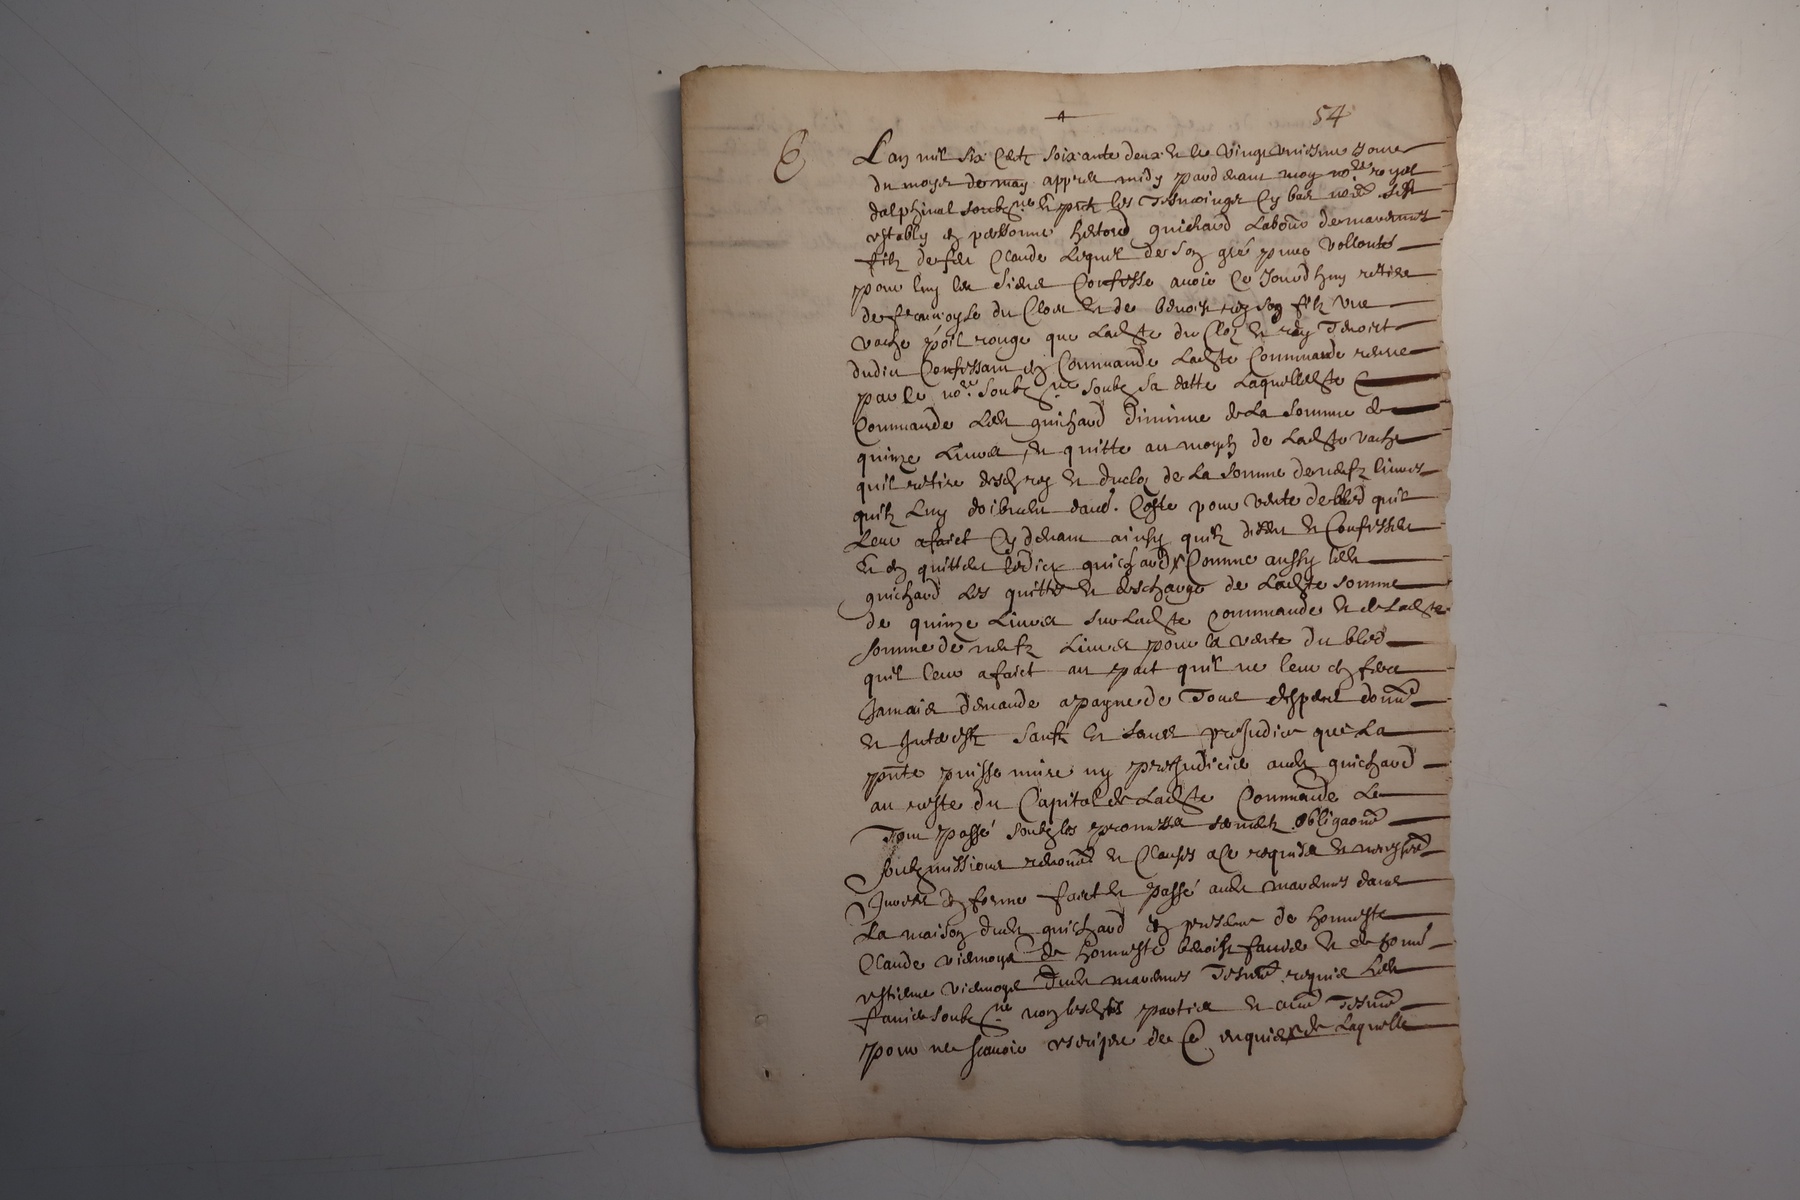 54
L'an mil six centz soixante deux et le vingt uniesme Jour
du moys de may appres midy pardevant moy no.re royal
dalphinal soubz.né et prntz les Tesmoings cy bas només s'est
estably en personne hector guichard Labour de marennes
filz de feu Claude Lequel de son gré pure vollonté
pour luy les siens Confesse avoir Ce Jourdhuy retire
de francoyse du Clos et de benoist rey son filz une
vache poil rouge que Ladite du Clos et rey Tenoict
dudit Confessant en Commande Ladite Commande receue
par le no.re soubz.né soubz sa datte Laquelle dite
Commande Ledit guichard diminue de La somme de
quinze Livres, et quitte au moyen de Ladite vache
quil retire desd rey et duclos de La somme de neufz livres
quilz Luy doibvent daud. Coste pour vente de bled quil
Leur a faict Cy devant ainsy quilz dissent et Confessent
et en quittent ledict guichard Comme aussy ledit
guichard Les quitte et descharge de Ladite somme
de quinze Livres sur Ladite Commande et de Ladite
somme de neufz Livres pour la vente du bled
quil leur a faict au pact quil ne leur en fera
Jamais demande a payne de Tous despens
et Interestz sauf et sans prejudice que La
pnte puisse nuire ny prejudicier audit guichard
au reste du Capital de Ladite Commande Le
Tout passé soubz les promesses sermentz obligaons
soubzmissions et Clauses a Ce requises et
en forme faict et passé audit marennes dans
La maison dudit guichard en presence de honneste
Claude viemoys de honneste benoist favier et de hon.
estienne viemoys dudit marennes Tesm. requis Ledit
favier soubz.né non lesdites parties et autres Tesm.
pour ne scavoir escripre de Ce enquis de Laquelle